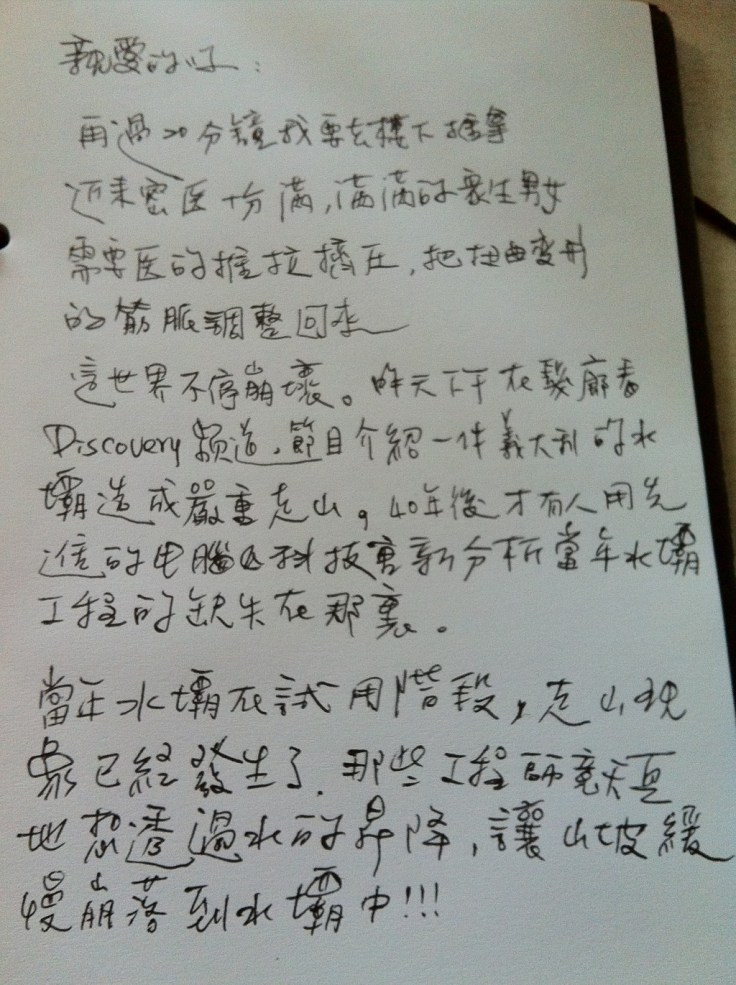 親愛的好：
再過20分鐘我要去樓下推拿
近來密医十分滿，滿滿的衆生男女
需要医的推拉擠圧，把扭曲変形
的筋脈調整回來
這世界不停崩壞。昨天下午在髮廊看
Discovery頻道，節目介紹一件義大利的水
壩造成嚴重走山，40年後才有人用先
進的电腦科技重新分析當年水壩
工程的缺失在那裏。
當年水壩在試用階段，走山現
象已經發生了，那些工程師竟天真
地想透過水的昇降，讓山坡緩
慢崩落到水壩中!!!